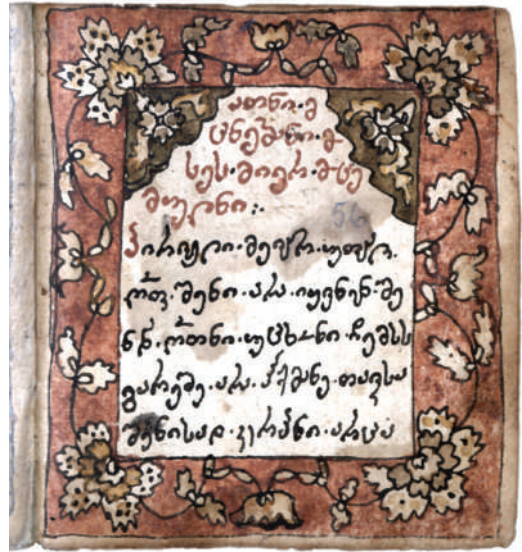 ათნი·მ
ცნებანი·მო
სეს·მიერ·მოცე
მულნი:.
56
პირველი·მევარ·უფალ.
ღ˜თ·შენი·არა·იყვნენ·შე
ნდ·ღ˜თნი·უცხონი·ჩემსა
გარეშე·არა·ჰქმნე·თავსა
შენისად·კერპნი·არცა